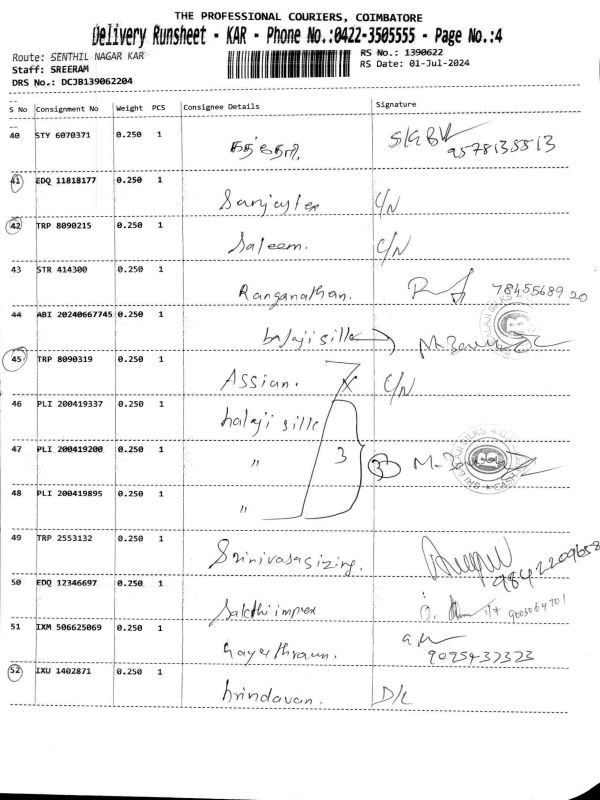 THE PROFESSIONAL COURIERS, COIMBATORE
Delivery Runsheet - KAR - Phone No.:0422-3505555 - Page No.:4
Route: SENTHIL NAGAR KAR
RS No.: 1390622
Staff: SREERAM
RS Date: 01-Jul-2024
DRS No.: DCJB139062204
S No Consignment No Weight PCS Consignee Details Signature
40 STY 6070371 0.250 1 9578135513
41 EDQ 11818177 0.250 1 Sanjaytex C/N
42 TRP 8090215 0.250 1 Saleem. C/N
43 STR 414300 0.250 1 Ranganathan. 7845568920
44 ABI 20240667745 0.250 1 balaji silk
45 TRP 8090319 0.250 1 Assian. C/N
46 PLI 200419337 0.250 1 balaji silk
47 PLI 200419200 0.250 1 " 3 3
48 PLI 200419895 0.250 1 "
49 TRP 2553132 0.250 1 Srinivasasizing. 9842209658
50 EDQ 12346697 0.250 1 Sakthi impex
51 IXM 506625069 0.250 1 9025432323
52 IXU 1402871 0.250 1 brindavan. D/L